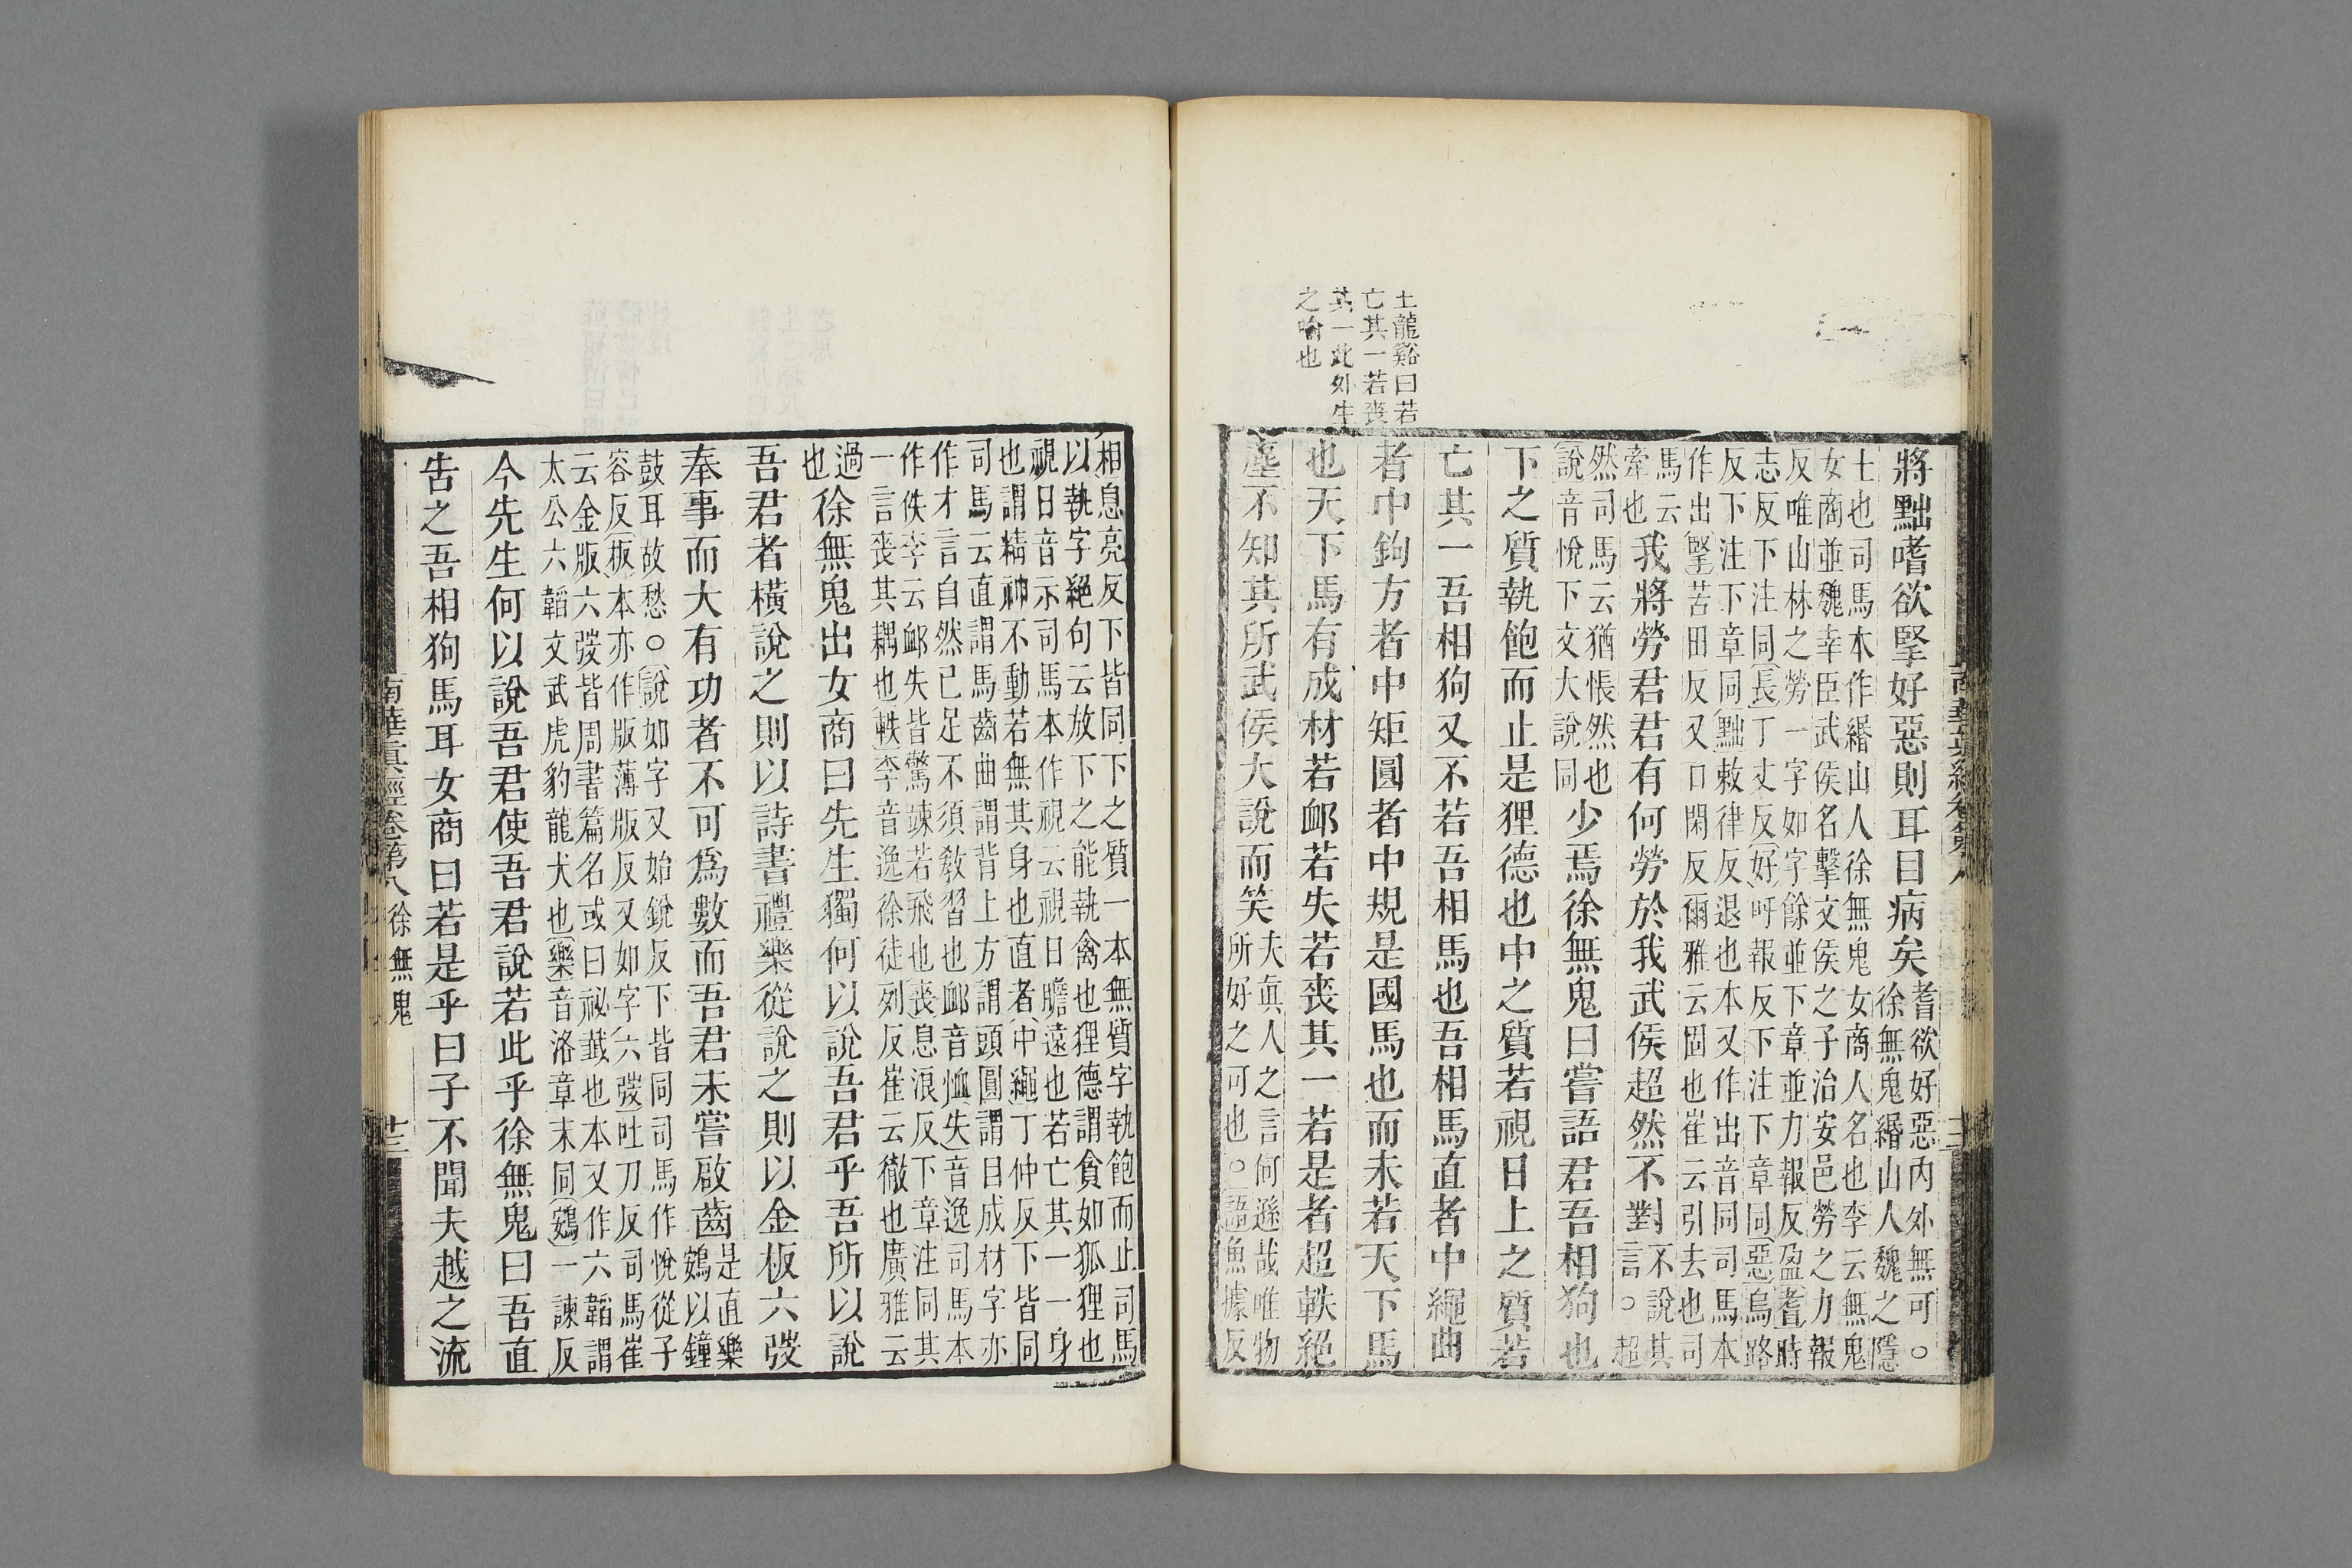 王龍谿曰若
亡其一若喪
其一此外生
之喻也
將黜嗜欲掔好惡則耳目病矣
耆欲好惡內外無可○
徐無鬼緡山人魏之隱
士也司馬本作緡山人徐無鬼女商人名也李云無鬼
女商並魏幸臣武侯名擊文侯之子治安邑勞之力報
反唯山林之勞一字如字餘並下章並力報反盈耆時
志反下注同長丁丈反好呼報反下注下章同惡烏路
反下注下章同黜敕律反退也本又作出音同司馬本
作出掔苦田反又口閑反爾雅云固也崔云引去也司
馬云
牽也
我將勞君君有何勞於我武侯超然不對
不說其
言○超
然司馬云猶悵然也
說音悅下文大說同
少焉徐無鬼曰嘗語君吾相狗也
下之質執飽而止是狸德也中之質若視日上之質若
亡其一吾相狗又不若吾相馬也吾相馬直者中繩曲
者中鉤方者中矩圓者中規是國馬也而未若天下馬
也天下馬有成材若卹若失若喪其一若是者超軼絕
塵不知其所武侯大說而笑
夫眞人之言何遜哉唯物
所好之可也○語魚據反
相息亮反下皆同下之質一本無質字執飽而止司馬
以執字絕句云放下之能執禽也狸德謂貪如狐狸也
視日音示司馬本作視云視日瞻遠也若亡其一一身
也謂精神不動若無其身也直者中繩丁仲反下皆同
司馬云直謂馬齒曲謂背上方謂頭圓謂目成材字亦
作才言自然已足不須敎習也卹音恤失音逸司馬本
作佚李云卹失皆驚竦若飛也喪息浪反下章注同其
一言喪其耦也軼李音逸徐徒列反崔云徹也廣雅云
過
也
徐無鬼出女商曰先生獨何以說吾君乎吾所以說
吾君者橫說之則以詩書禮樂從說之則以金板六弢
奉事而大有功者不可爲數而吾君未嘗啟齒
是直樂
鴳以鐘
鼓耳故愁○說如字又始銳反下皆同司馬作悅從子
容反板本亦作版薄版反又如字六弢吐刀反司馬崔
云金版六弢皆周書篇名或曰祕䜟也本又作六韜謂
太公六韜文武虎豹龍犬也樂音洛章末同鴳一諫反
今先生何以說吾君使吾君說若此乎徐無鬼曰吾直
告之吾相狗馬耳女商曰若是乎曰子不聞夫越之流
南華眞經卷第八 徐無鬼 廿三